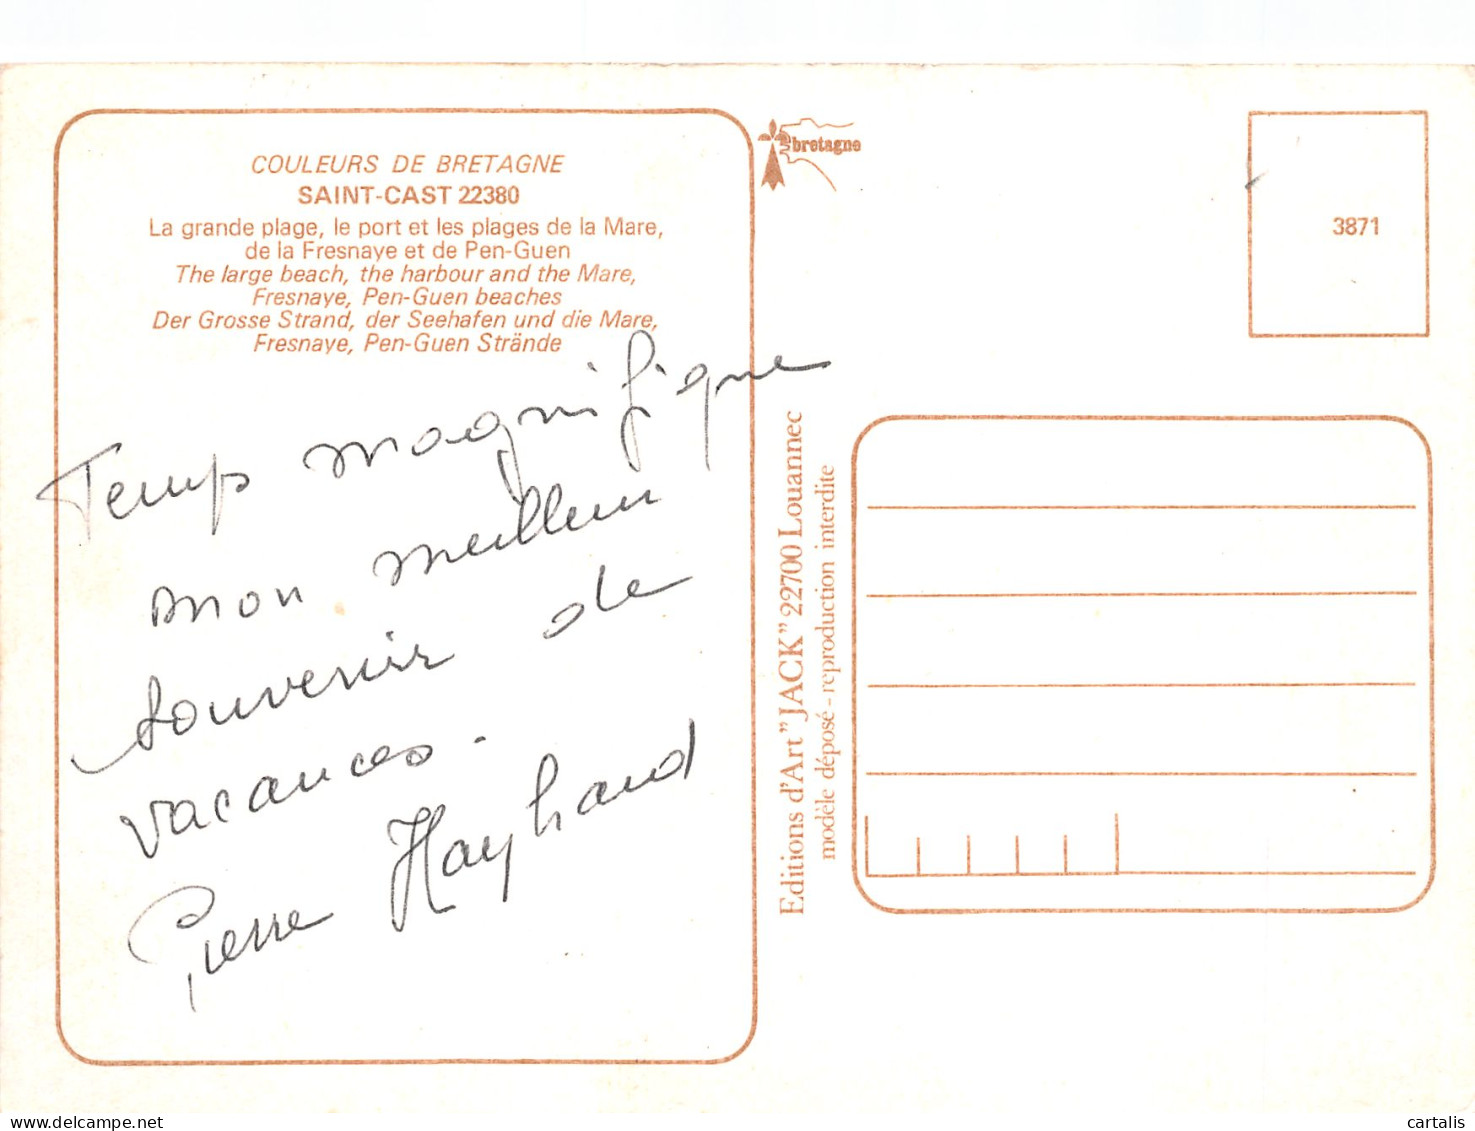 COULEURS DE BRETAGNE
SAINT-CAST 22380
La grande plage, le port et les plages de la Mare,
de la Fresnaye et de Pen-Guen
The large beach, the harbour and the Mare,
Fresnaye, Pen-Guen beaches
Der Grosse Strand, der Seehafen und die Mare,
Fresnaye, Pen-Guen Strände
Temps magnifique
mon meilleur
souvenir de
vacances.
Pierre
bretagne
3871
Editions d'Art "JACK" 22700 Louannec
modèle déposé - reproduction interdite
cartalis